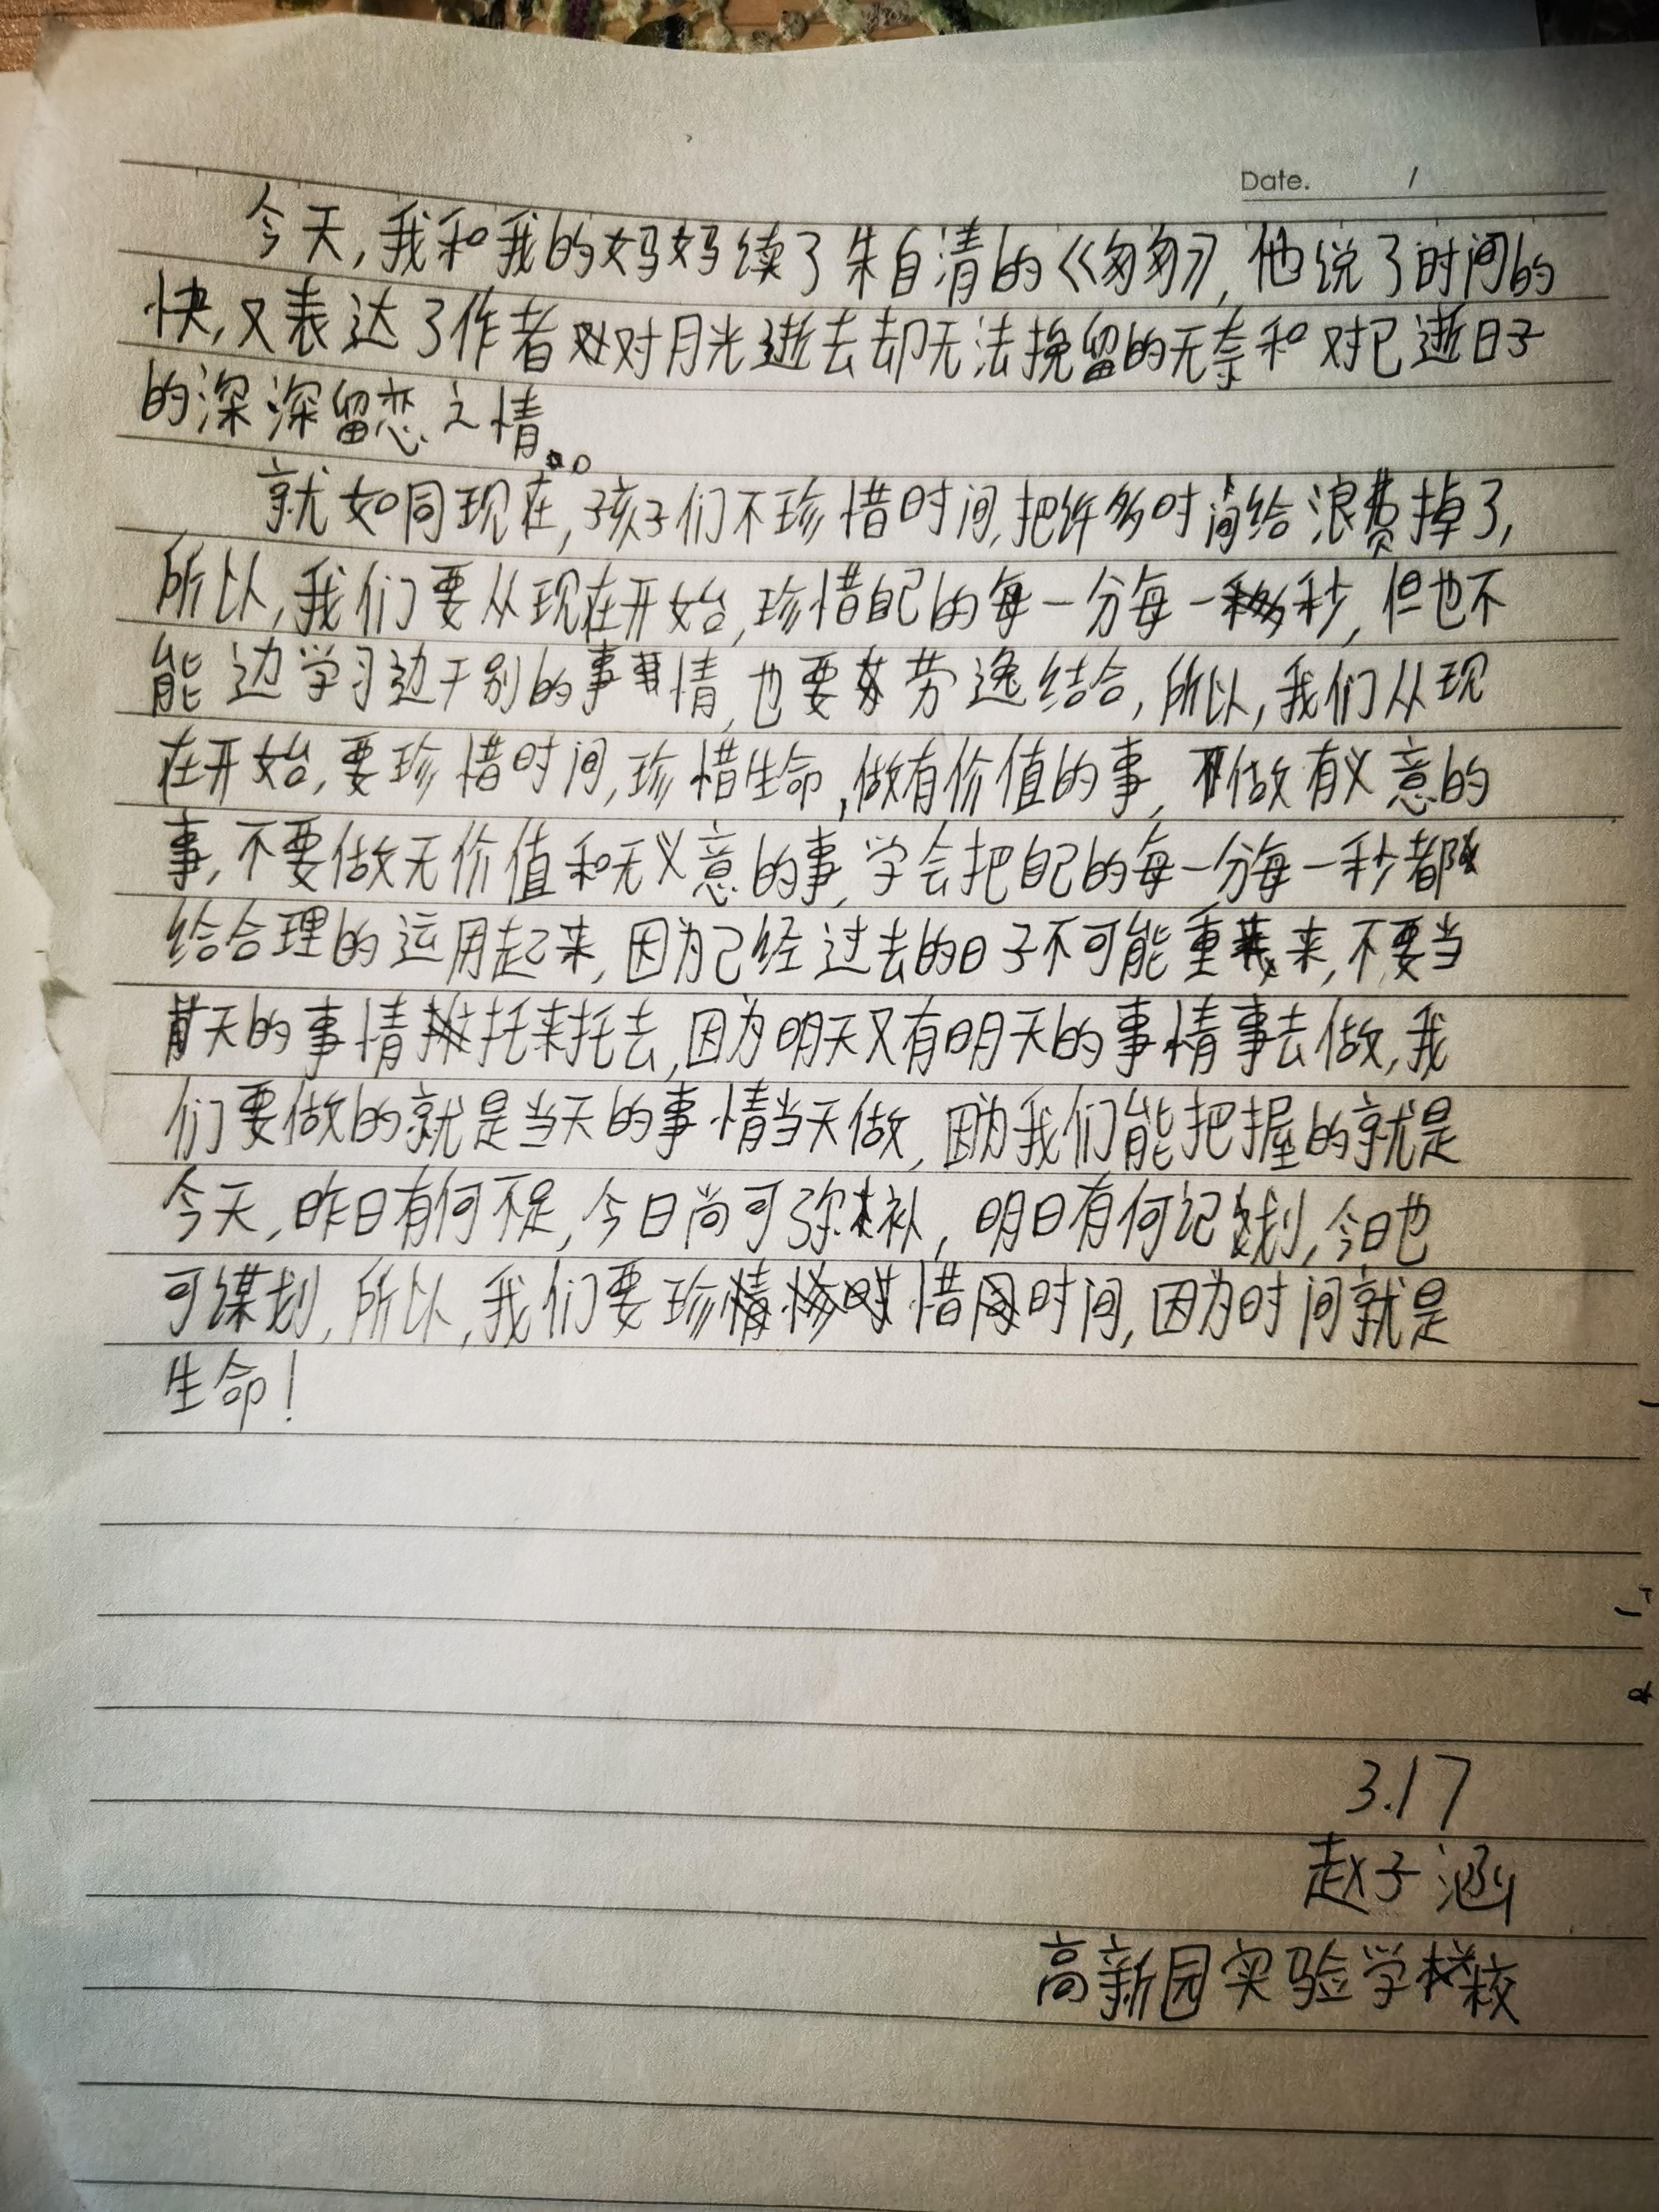 Date. /
今天,我和我的妈妈续了朱自清的《匆匆》,他说了时间的
快,又表达了作者对月光逝去却无法挽留的无奈和对已逝日子
的深深留恋之情。
就如同现在,孩子们不珍惜时间,把许多时间给浪费掉了,
所以,我们要从现在开始,珍惜自己的每一分每一秒,但也不
能边学习边干别的事情,也要劳逸结合,所以,我们从现
在开始,要珍惜时间,珍惜生命,做有价值的事,做有义意的
事,不要做无价值和无义意的事,学会把自己的每一分每一秒都
给合理的运用起来,因为已经过去的日子不可能重来,不要当
天的事情托来托去,因为明天又有明天的事情事去做,我
们要做的就是当天的事情当天做,因为我们能把握的就是
今天,昨日有何不足,今日尚可弥补,明日有何记划,今日也
可谋划,所以,我们要珍惜时间,因为时间就是
生命!
3.17
赵子涵
高新园实验学校